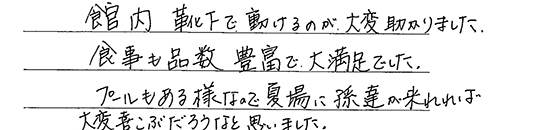 館内 靴下で動けるのが、大変助かりました、
食事も品数 豊富で、大満足でした。
プールもある様なので夏場に孫達が来れればば
大変喜こぶだろうなと思いました。